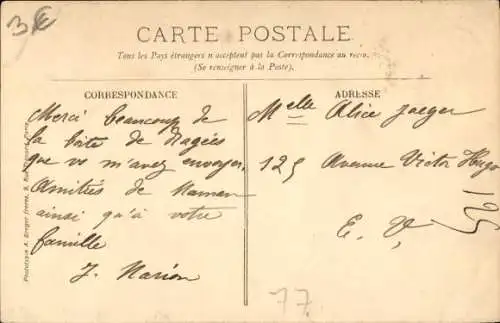 3€
CARTE POSTALE
Tous les Pays étrangers n'acceptent pas la Correspondance au recto.
(Se renseigner à la Poste).
CORRESPONDANCE
Merci beaucoup de
la boite de Dragées
que vs m'avez envoyer,
Amitiés de Maman
ainsi qu'à votre
famille
J. Marion
ADRESSE
Melle Alice Jaeger
125 Avenue Victor Hugo
E. V.
125
77
Phototypie A. Breger frères, 9, Rue